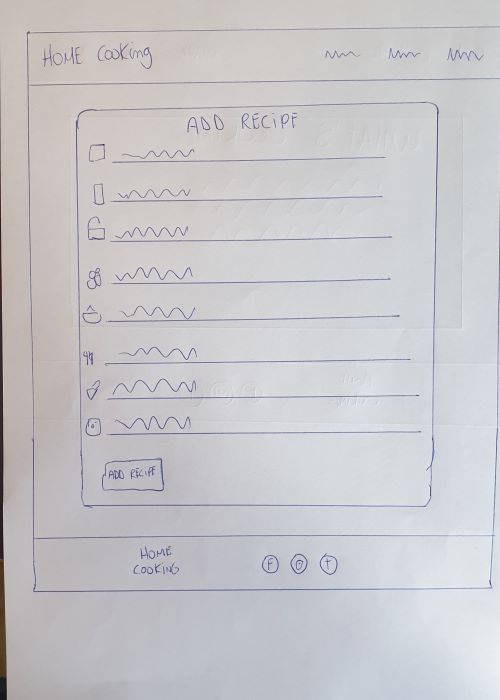 HOME Cooking
ADD RECIPE
ADD RECIPE
HOME
COOKING
F
t